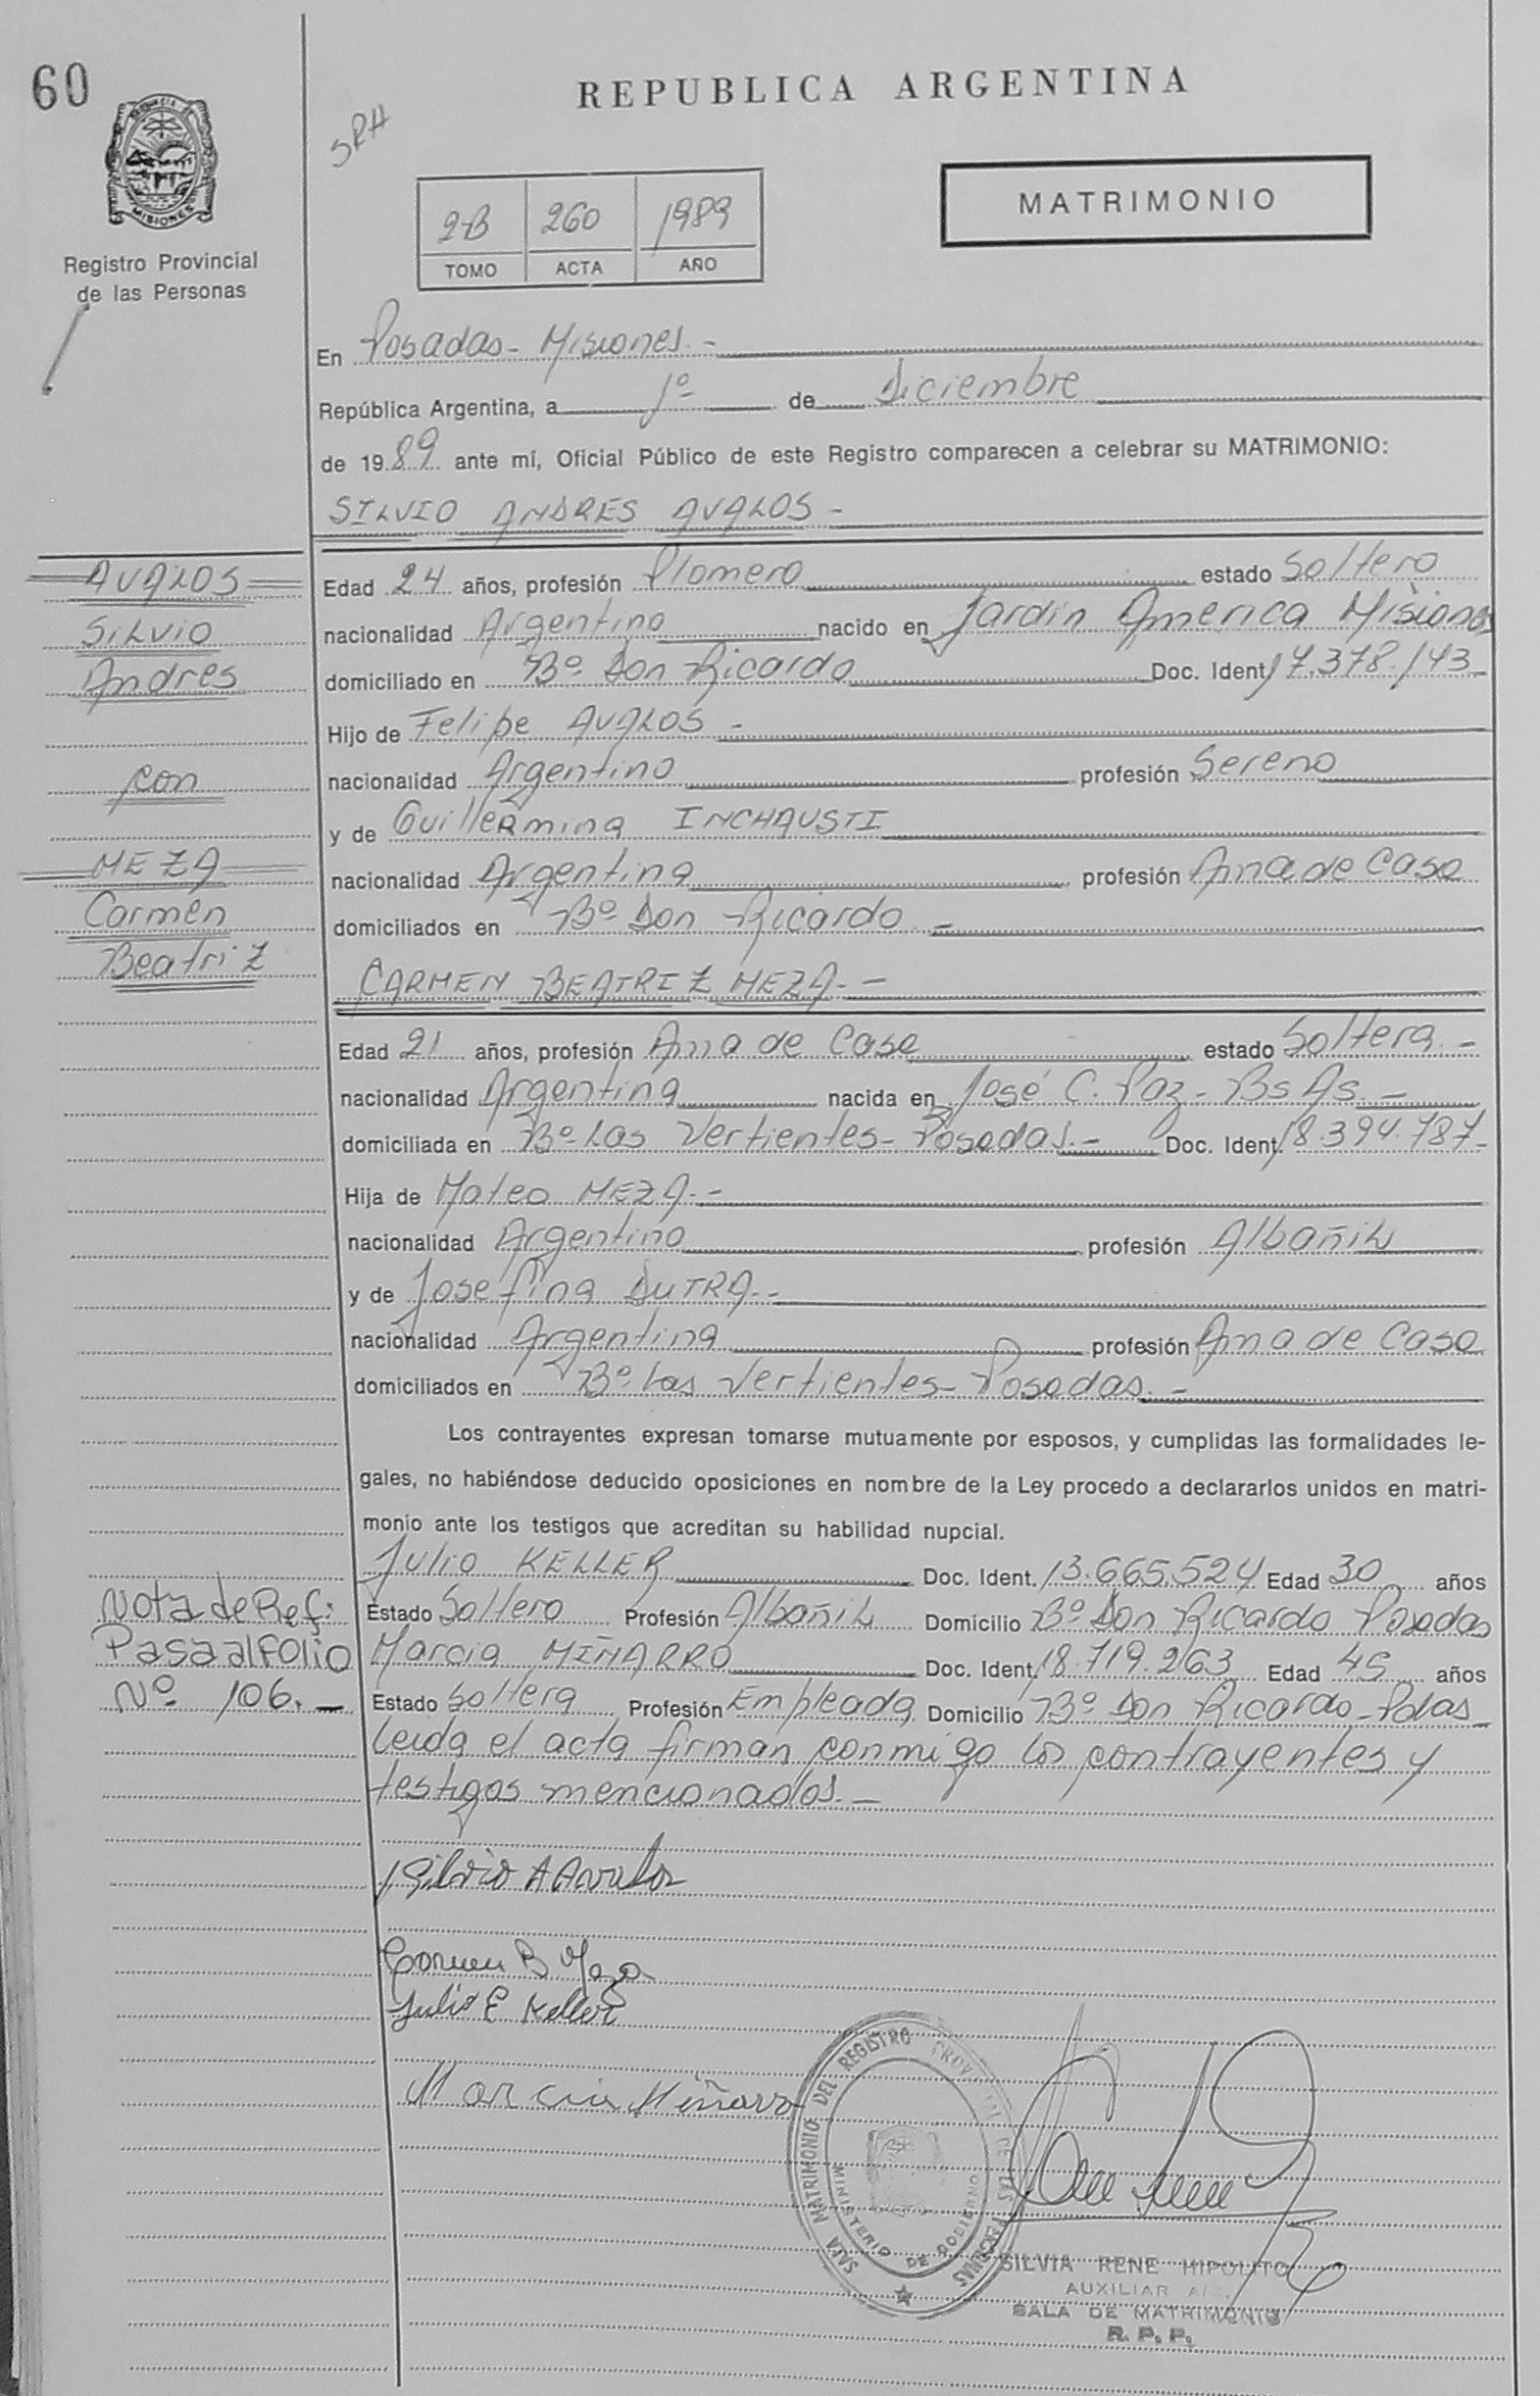 60
REPUBLICA ARGENTINA
SRH
MISIONES
Registro Provincial
de las Personas
2-B 260 1989
TOMO ACTA AÑO
MATRIMONIO
En Posadas - Misiones. -
República Argentina, a 1º de Diciembre
de 1989 ante mí, Oficial Público de este Registro comparecen a celebrar su MATRIMONIO:
SILVIO ANDRES AVALOS -
AVALOS
Silvio
Andres
con
MEZA
Carmen
Beatriz
Edad 24 años, profesión Plomero estado Soltero
nacionalidad Argentino nacido en Jardin America Misiones
domiciliado en Bº Don Ricardo Doc. Ident 17.378.143
Hijo de Felipe AVALOS -
nacionalidad Argentino profesión Sereno
y de Guillermina INCHAUSTI
nacionalidad Argentina profesión Ama de Casa
domiciliados en Bº Don Ricardo. -
CARMEN BEATRIZ MEZA. -
Edad 21 años, profesión Ama de Casa estado Soltera. -
nacionalidad Argentina nacida en José C. Paz - Bs As. -
domiciliada en Bº Las Vertientes - Posadas. - Doc. Ident. 18.394.787-
Hija de Mateo MEZA. -
nacionalidad Argentino profesión Albañil
y de Josefina DUTRA. -
nacionalidad Argentina profesión Ama de Casa
domiciliados en Bº Las Vertientes - Posadas. -
Los contrayentes expresan tomarse mutuamente por esposos, y cumplidas las formalidades le-
gales, no habiéndose deducido oposiciones en nombre de la Ley procedo a declararlos unidos en matri-
monio ante los testigos que acreditan su habilidad nupcial.
Julio KELLER Doc. Ident. 13.665.524 Edad 30 años
Estado Soltero Profesión Albañil Domicilio Bº Don Ricardo Posadas
Marcia MIÑARRO Doc. Ident. 18.719.263 Edad 45 años
Estado Soltera Profesión Empleada Domicilio Bº Don Ricardo - Pdas -
Leida el acta firman conmigo los contrayentes y
testigos mencionados. -
Nota de Ref:
Pasa al Folio
Nº 106. -
Silvio A Avalos
Carmen B Meza
Julio E Keller
Marcia Miñarro
SALA MATRIMONIO DEL REGISTRO PROVINCIAL DE LAS PERSONAS
MINISTERIO DE GOBIERNO
SILVIA RENE HIPOLITO
AUXILIAR A/C
SALA DE MATRIMONIO
R. P. P.